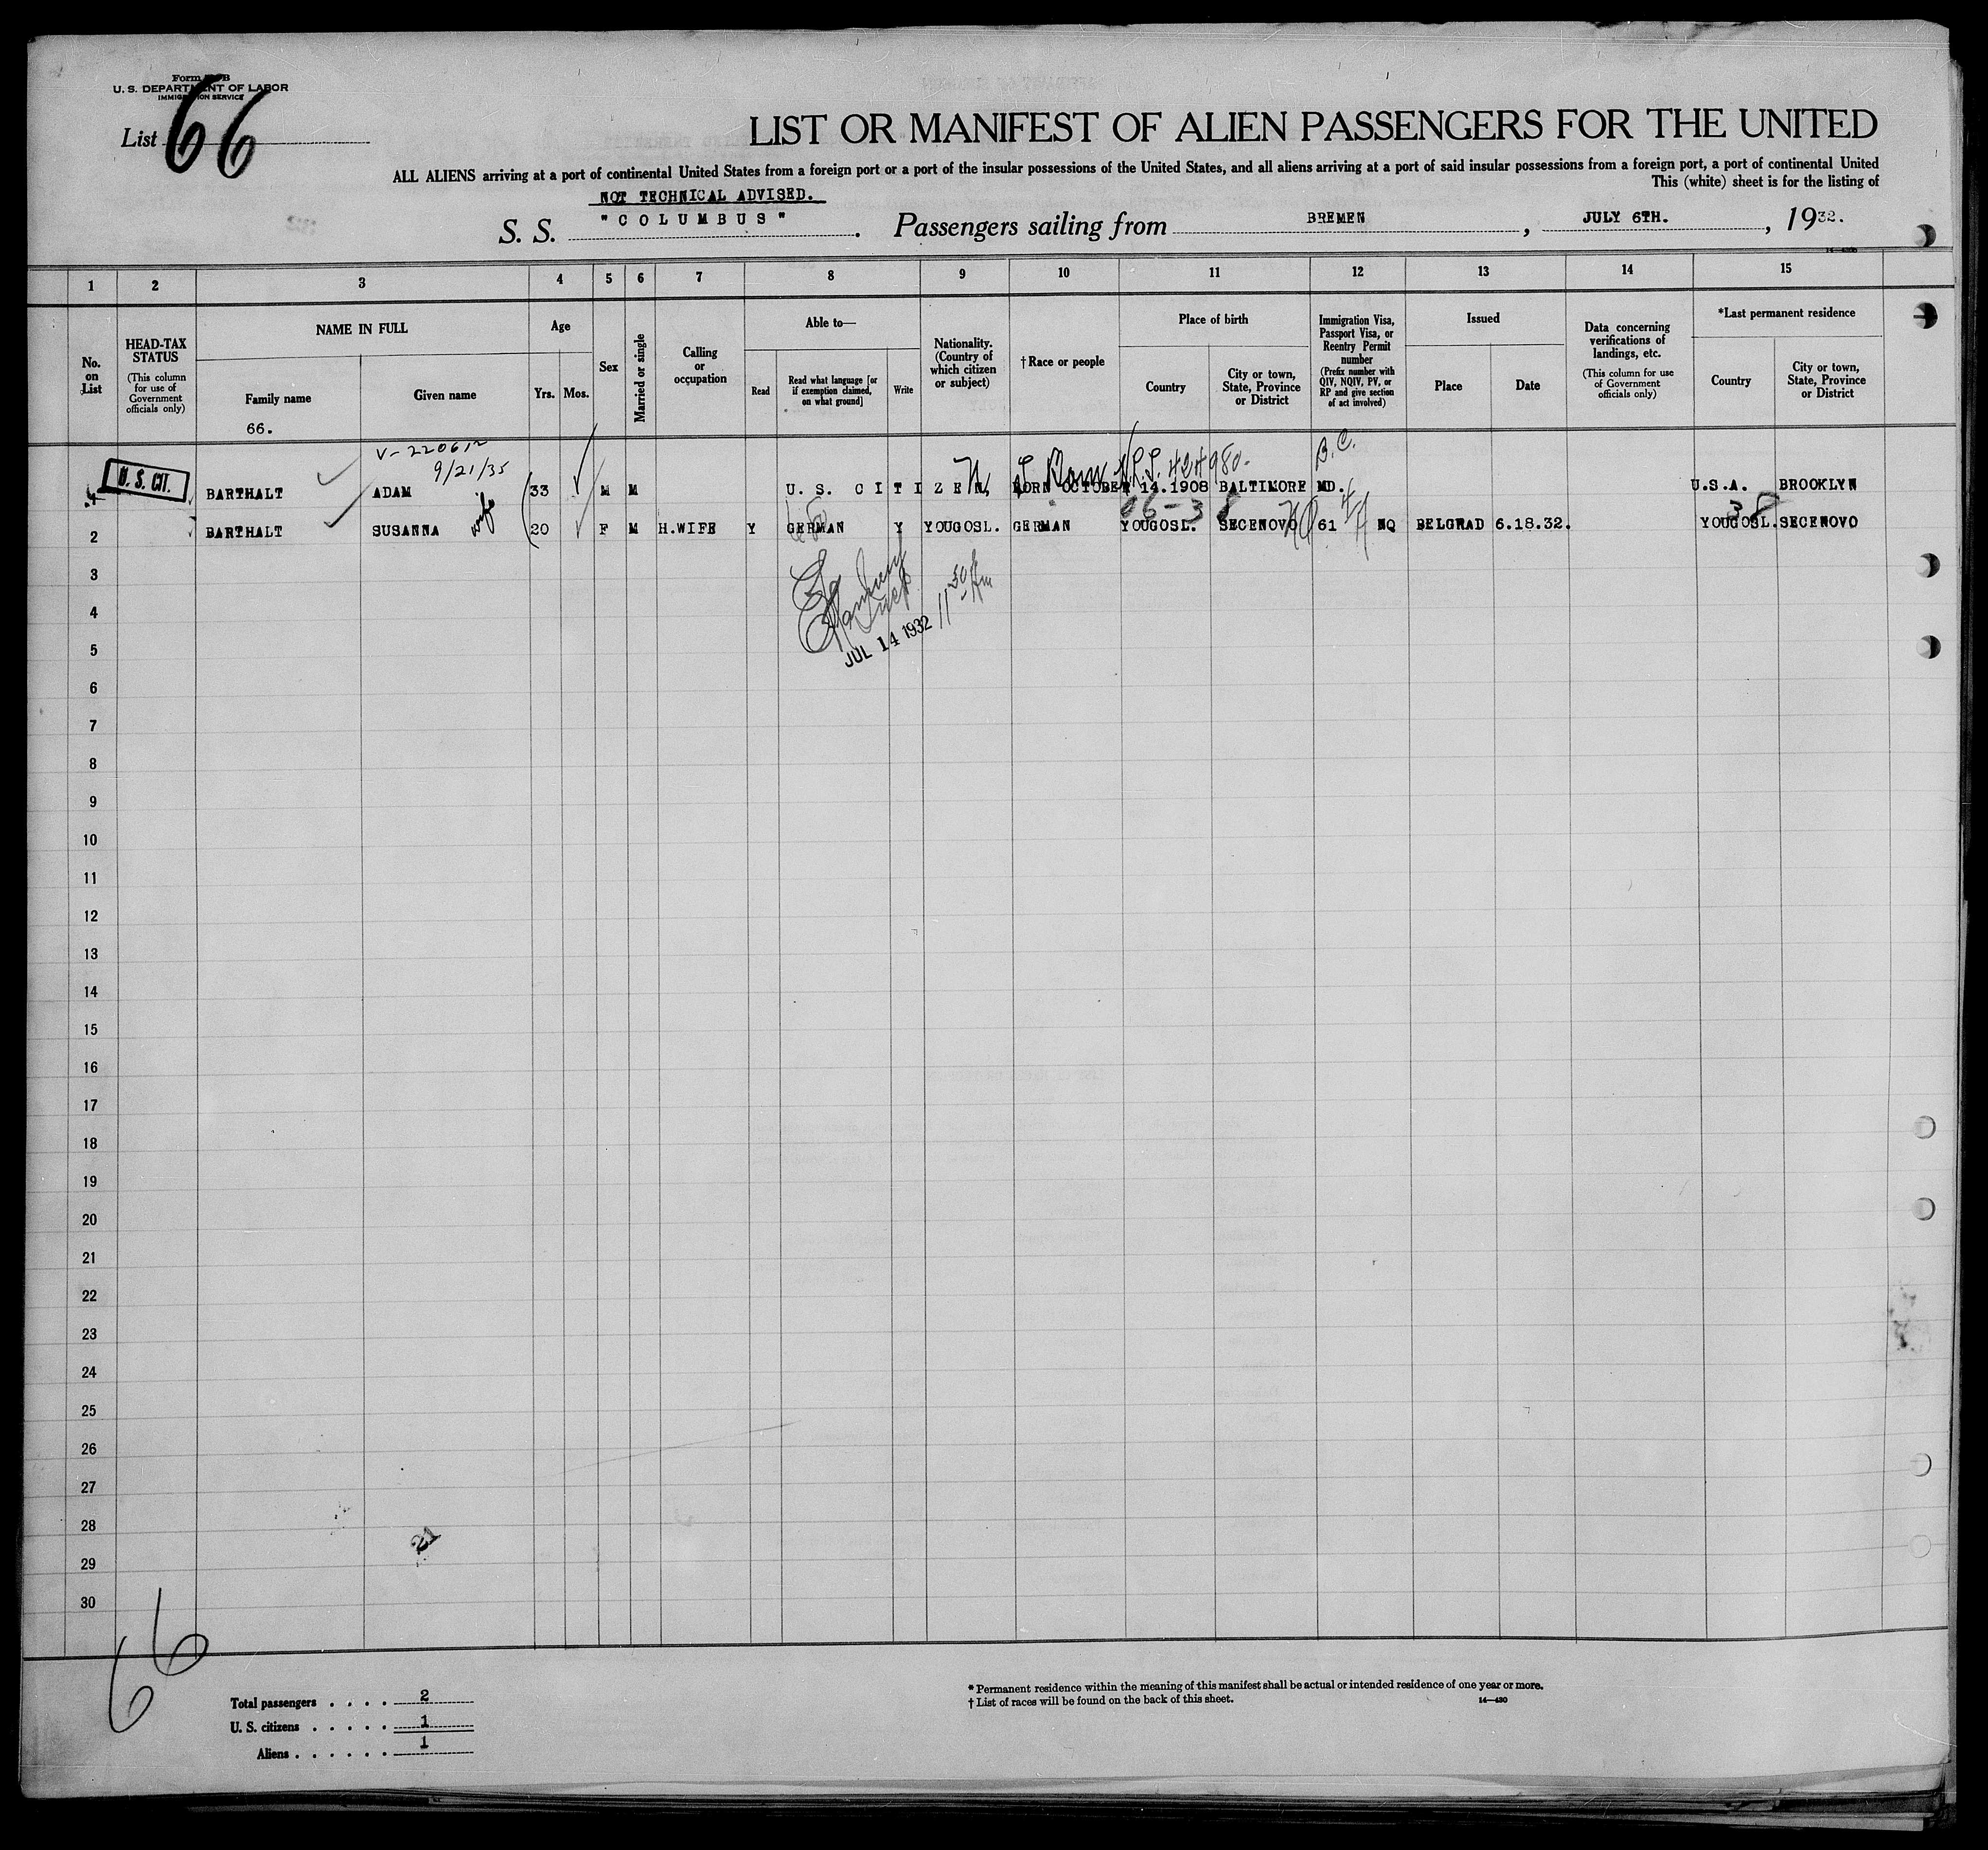 Form B
U. S. DEPARTMENT OF LABOR
IMMIGRATION SERVICE
List 66
LIST OR MANIFEST OF ALIEN PASSENGERS FOR THE UNITED
ALL ALIENS arriving at a port of continental United States from a foreign port or a port of the insular possessions of the United States, and all aliens arriving at a port of said insular possessions from a foreign port, a port of continental United
This (white) sheet is for the listing of
NOT TECHNICAL ADVISED.
S. S. "COLUMBUS". Passengers sailing from BREMEN, JULY 6TH., 1932.
1 2 3 4 5 6 7 8 9 10 11 12 13 14 15
No. on List
HEAD-TAX STATUS
(This column for use of Government officials only)
NAME IN FULL
Family name
66.
Given name
Age
Yrs. Mos.
Sex
Married or single
Calling or occupation
Able to—
Read
Read what language [or if exemption claimed, on what ground]
Write
Nationality. (Country of which citizen or subject)
†Race or people
Place of birth
Country
City or town, State, Province or District
Immigration Visa, Passport Visa, or Reentry Permit number
(Prefix number with QIV, NQIV, PV, or RP and give section of act involved)
Issued
Place
Date
Data concerning verifications of landings, etc.
(This column for use of Government officials only)
*Last permanent residence
Country
City or town, State, Province or District
V-220612
9/21/35
B.C.
424980-
U. S. CIT. BARTHALT ADAM 33 M M U. S. CITIZEN, BORN OCTOBER 14.1908 BALTIMORE MD. U.S.A. BROOKLYN
06-38 38
2 BARTHALT SUSANNA wife 20 F M H.WIFE Y GERMAN Y YOUGOSL. GERMAN YOUGOSL. SECENOVO 61 NQ BELGRAD 6.18.32. YOUGOSL. SECENOVO
3
11 30 Am
4
JUL 14 1932
5
6
7
8
9
10
11
12
13
14
15
16
17
18
19
20
21
22
23
24
25
26
27
28
21
29
30
66
Total passengers . . . . 2
U. S. citizens . . . . . 1
Aliens . . . . . . 1
* Permanent residence within the meaning of this manifest shall be actual or intended residence of one year or more.
† List of races will be found on the back of this sheet.
14—430